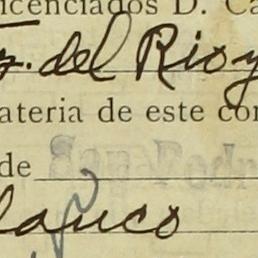 icenciados D. Ca
z. del Rio y
ateria de este con
de
lanco